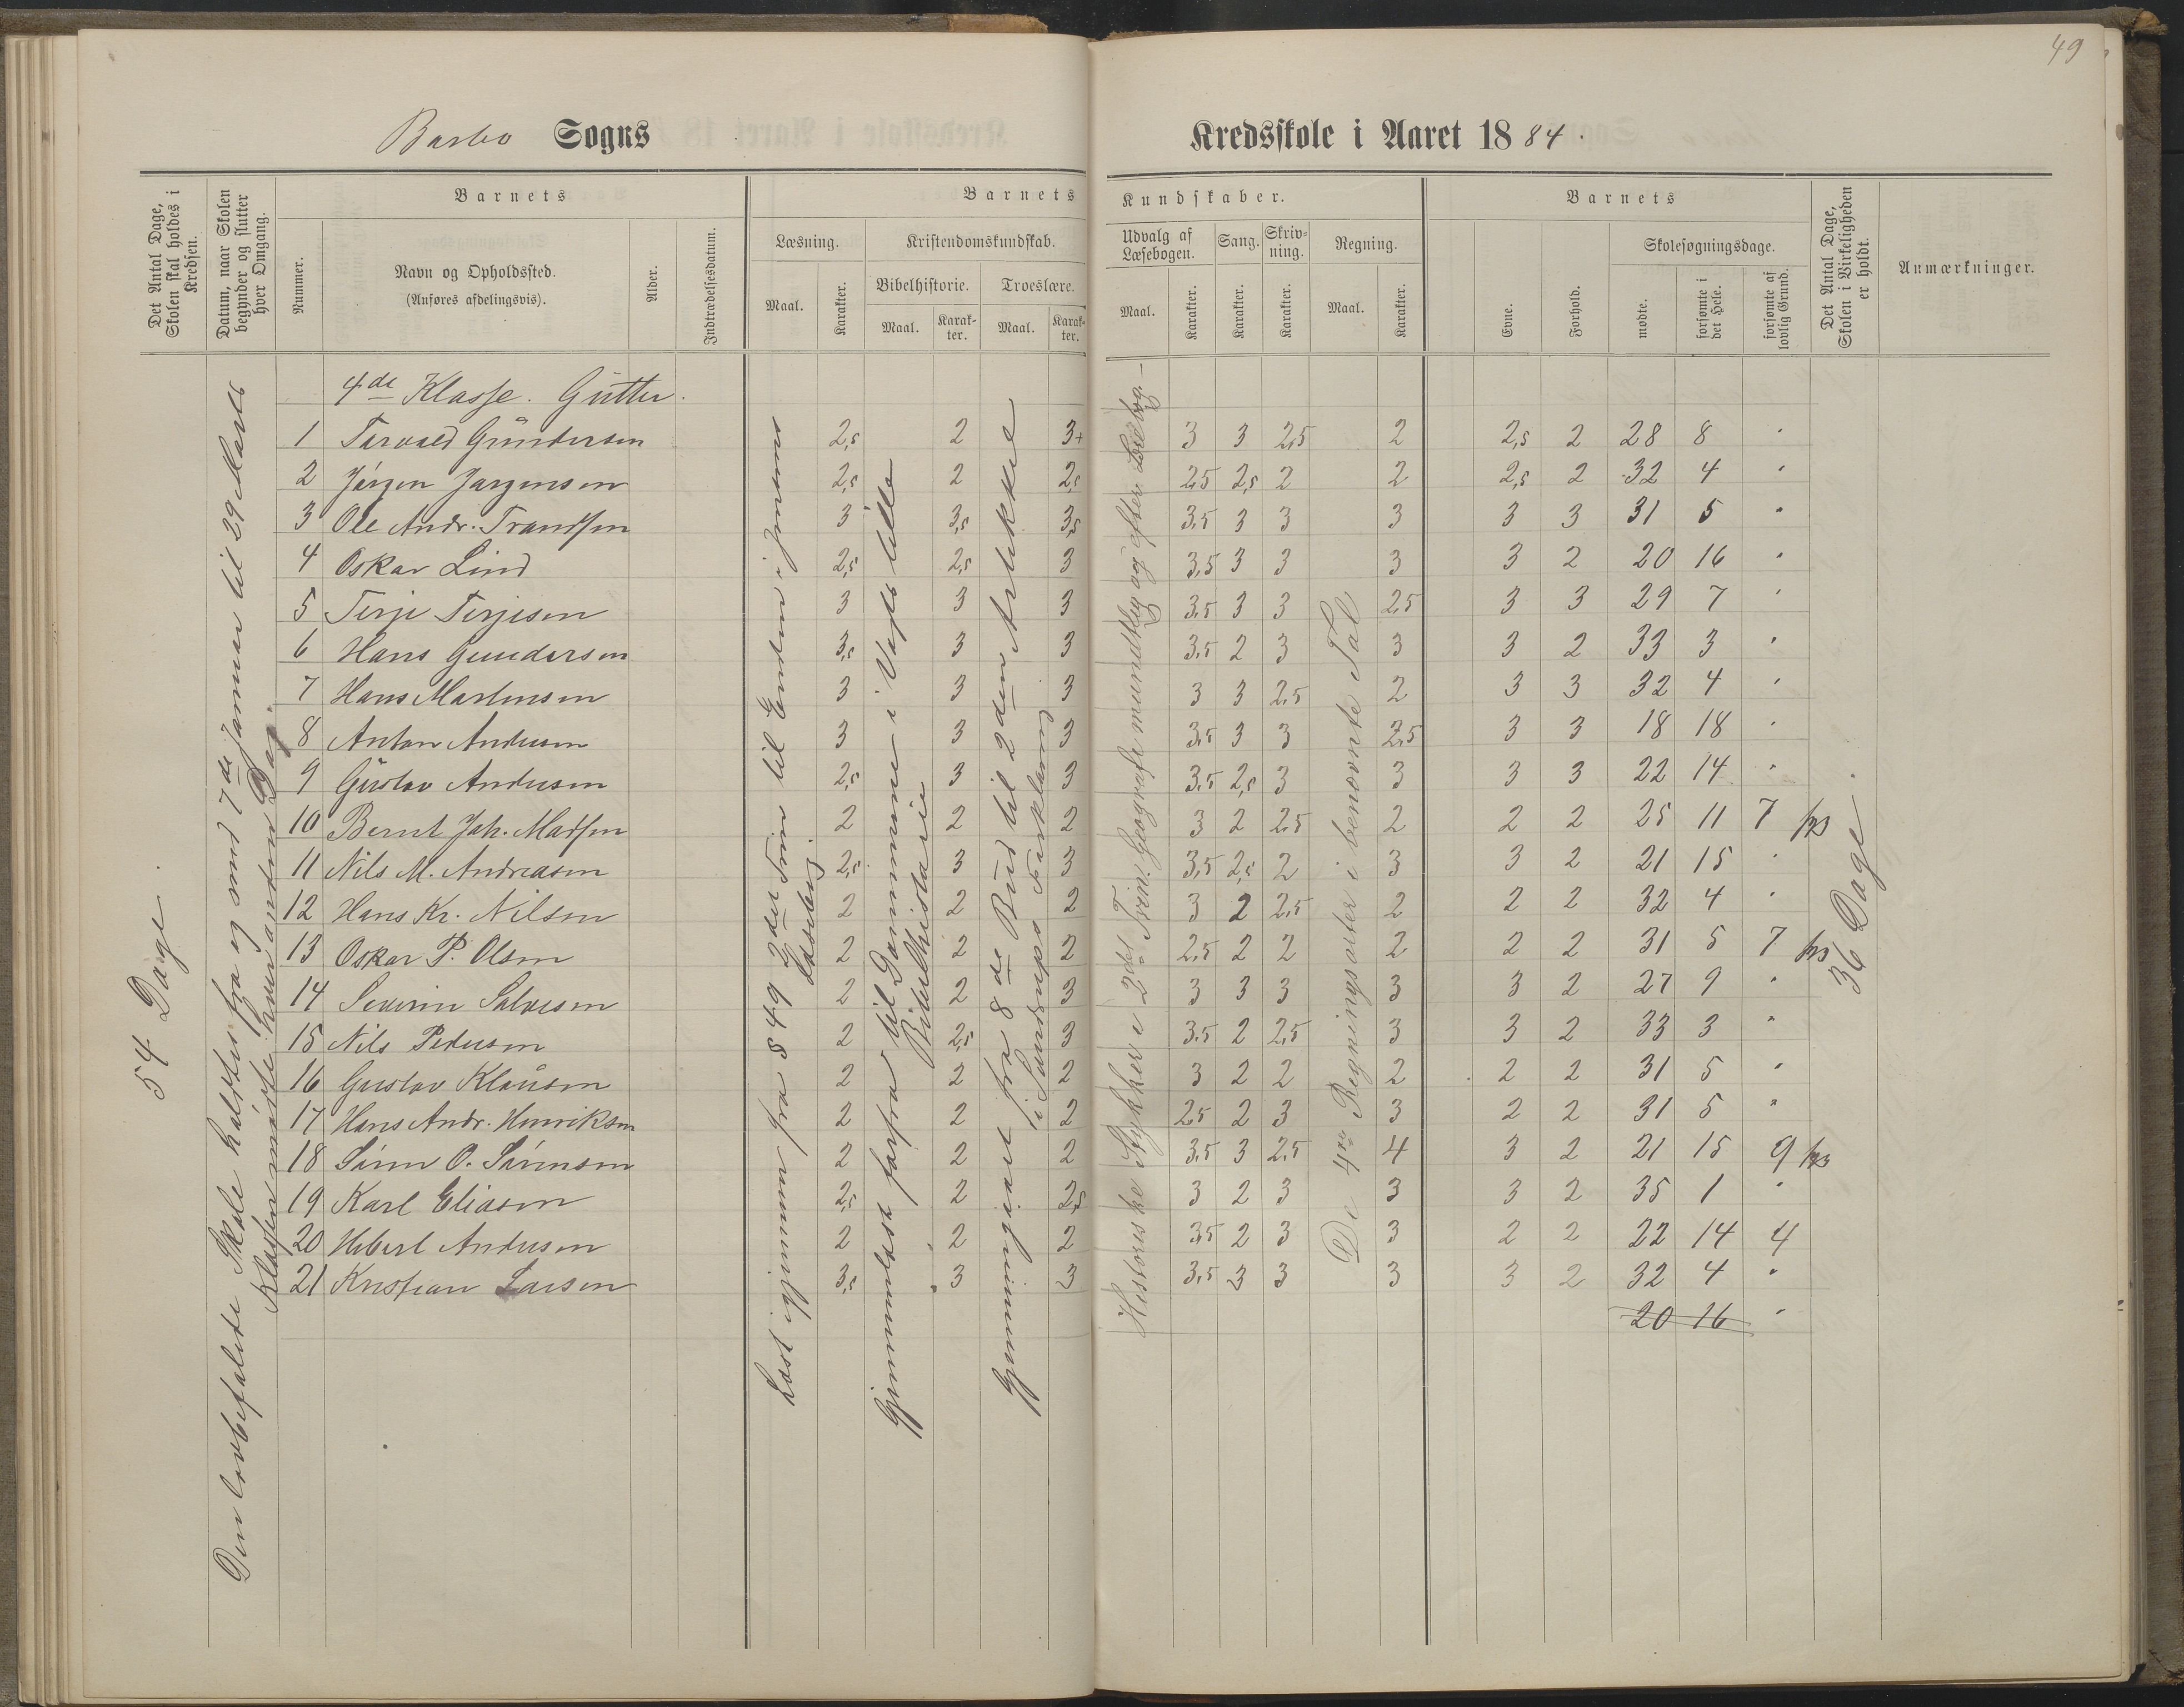 49
Barbo Sogns
Kredsskole i Aaret 1884.
Det Antal Dage, Skolen skal holdes i Kredsen.
Datum, naar Skolen begynder og slutter hver Omgang.
Barnets
Nummer.
Navn og Opholdssted.
(Anføres afdelingsvis).
Alder.
Indtrædelsesdatum.
Barnets
Læsning.
Maal.
Karakter.
Kristendomskundskab.
Bibelhistorie.
Maal.
Karakter.
Troeslære.
Maal.
Karakter.
Kundskaber.
Udvalg af Læsebogen.
Maal.
Karakter.
Sang.
Karakter.
Skrivning.
Karakter.
Regning.
Maal.
Karakter.
Barnets
Evne.
Forhold.
Skolesøgningsdage.
mødte.
forsømte i det Hele.
forsømte af lovlig Grund.
Det Antal Dage, Skolen i Virkeligheden er holdt.
Anmærkninger.
54 Dage.
Den lovbefalede Skole holdtes fra og med 7de Januar til 29 Marts
Klassen mødte hver anden Dag.
Læst igjennem fra § 49 2det Trin til Enden i Jensens
Læsebog.
Gjennemlæst forfra til Dommerne i Vogts lille
Bibelhistorie
Gjennemgaaet fra 8de Bud til 2den Artikkel
i Sverdrups Forklaring
Historiske Stykker i 2det Trin. Geografi mundtlig og efter Læsebog
De 4re Regningsarter i benævnte Tal
36 Dage.
4de Klasse. Gutter.
1 Torvald Gundersen 2,5 2 3+ 3 3 2,5 2 2,5 2 28 8 "
2 Jørgen Jørgensen 2,5 2 2,5 2,5 2,5 2 2 2,5 2 32 4 "
3 Ole Andr. Trandsen 3 3,5 3,5 3,5 3 3 3 3 3 31 5 "
4 Oskar Lind 2,5 2,5 3 3,5 3 3 3 3 2 20 16 "
5 Terje Terjesen 3 3 3 3,5 3 3 2,5 3 3 29 7 "
6 Hans Gundersen 3,5 3 3 3,5 2 3 3 3 2 33 3 "
7 Hans Martinsen 3 3 3 3 3 2,5 2 3 3 32 4 "
8 Anton Andersen 3 3 3 3,5 3 3 2,5 3 3 18 18 "
9 Gustav Andersen 2,5 3 3 3,5 2,5 3 3 3 3 22 14 "
10 Bernt Joh. Madsen 2 2 2 3 2 2,5 2 2 2 25 11 7
11 Nils M. Andreasen 2,5 3 3 3,5 2,5 2 3 3 2 21 15 "
12 Hans Kr. Nilsen 2 2 2 3 2 2,5 2 2 2 32 4 "
13 Oskar P. Olsen 2 2 2 2,5 2 2 2 2 2 31 5 7
14 Severin Salvesen 2 2 3 3 3 3 3 3 2 27 9 "
15 Nils Pedersen 2 2,5 3 3,5 2 2,5 3 3 2 33 3 "
16 Gustav Klausen 2 2 2 3 2 2 2 2 2 31 5 "
17 Hans Andr. Henriksen 2 2 2 2,5 2 3 3 2 2 31 5 "
18 Søren O. Sørensen 2 2 2 3,5 3 2,5 4 3 2 21 15 9
19 Karl Eliasen 2,5 2 2,5 3 2 3 3 3 2 35 1 "
20 Hibert Andersen 2 2 2 3,5 2 3 3 2 2 22 14 4
21 Kristian Larsen 3,5 3 3 3,5 3 3 3 3 2 32 4 "
20 16 "